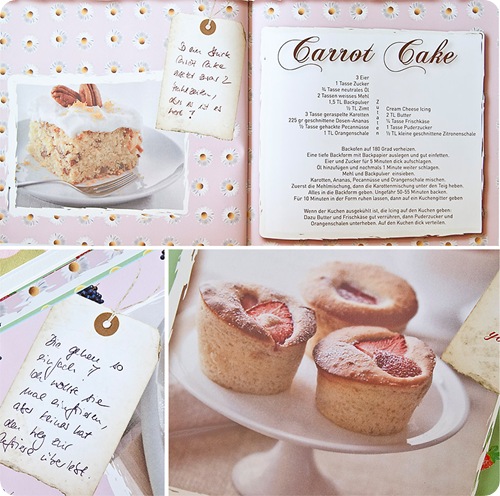 Carrot Cake
3 Eier
1 Tasse Zucker
¾ Tasse neutrales Öl
2 Tassen weisses Mehl
1,5 TL Backpulver
½ TL Zimt
3 Tasse geraspelte Karotten
225 gr geschnittene Dosen-Ananas
½ Tasse gehackte Pecannüsse
1 TL Orangenschale
Zutaten
Cream Cheese Icing
2 TL Butter
¾ Tasse Frischkäse
1 Tasse Puderzucker
½ TL kleine geschnittene Zitronenschale
Backofen auf 180 Grad vorheizen.
Eine tiefe Backform mit Backpapier auslegen und gut einfetten.
Eier und Zucker für 5 Minuten dick aufschlagen.
Öl hinzufügen und nochmals 1 Minute weiter schlagen.
Mehl und Backpulver einsieben.
Karotten, Ananas, Pecannüsse und Orangenschale mischen.
Zuerst die Mehlmischung, dann die Karottenmischung unter den Teig heben.
Alles in die Backform geben. Ungefähr 50-55 Minuten backen.
Für 10 Minuten in der Form ruhen lassen, dann auf ein Kuchengitter geben
Wenn der Kuchen ausgekühlt ist, die Icing auf den Kuchen geben.
Dazu Butter und Frischkäse gut verrühren, dann Puderzucker und
Orangenschalen unterheben. Auf den Kuchen dick verteilen.
gehen so
einfach!
Ich wollte sie
mal einfrieren,
aber keines hat
den Weg zur
überlebt.